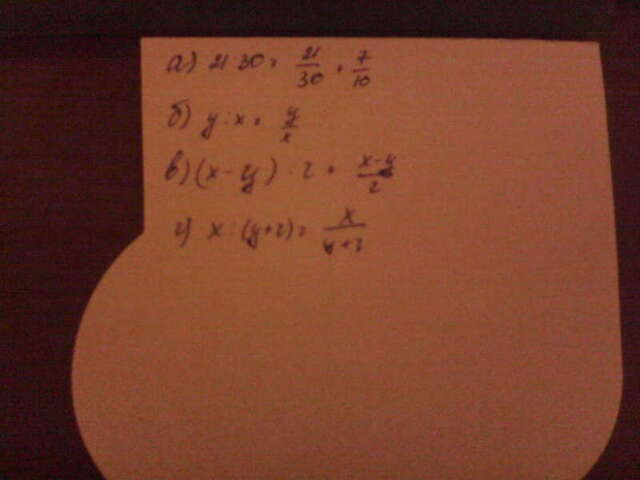 а) 21:30 = 21/30 = 7/10
б) y:x = y/x
в) (x-y):2 = x-y/2
г) x:(y+2) = x/y+2